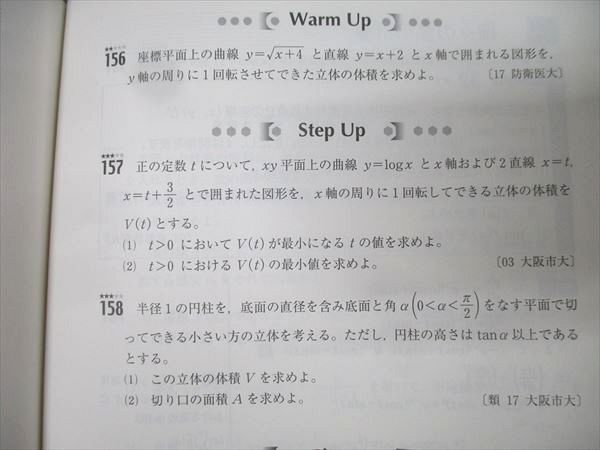 Warm Up
156 座標平面上の曲線 y=√(x+4) と直線 y=x+2 と x 軸で囲まれる図形を,
y 軸の周りに1回転させてできた立体の体積を求めよ。 〔17 防衛医大〕
Step Up
157 正の定数 t について, xy 平面上の曲線 y=logx と x 軸および2直線 x=t,
x=t+3/2 とで囲まれた図形を, x 軸の周りに1回転してできる立体の体積を
V(t) とする。
(1) t>0 において V(t) が最小になる t の値を求めよ。
(2) t>0 における V(t) の最小値を求めよ。 〔03 大阪市大〕
158 半径1の円柱を, 底面の直径を含み底面と角 α(0<α<π/2) をなす平面で切
ってできる小さい方の立体を考える。ただし, 円柱の高さは tanα 以上である
とする。
(1) この立体の体積 V を求めよ。
(2) 切り口の面積 A を求めよ。 〔類 17 大阪市大〕